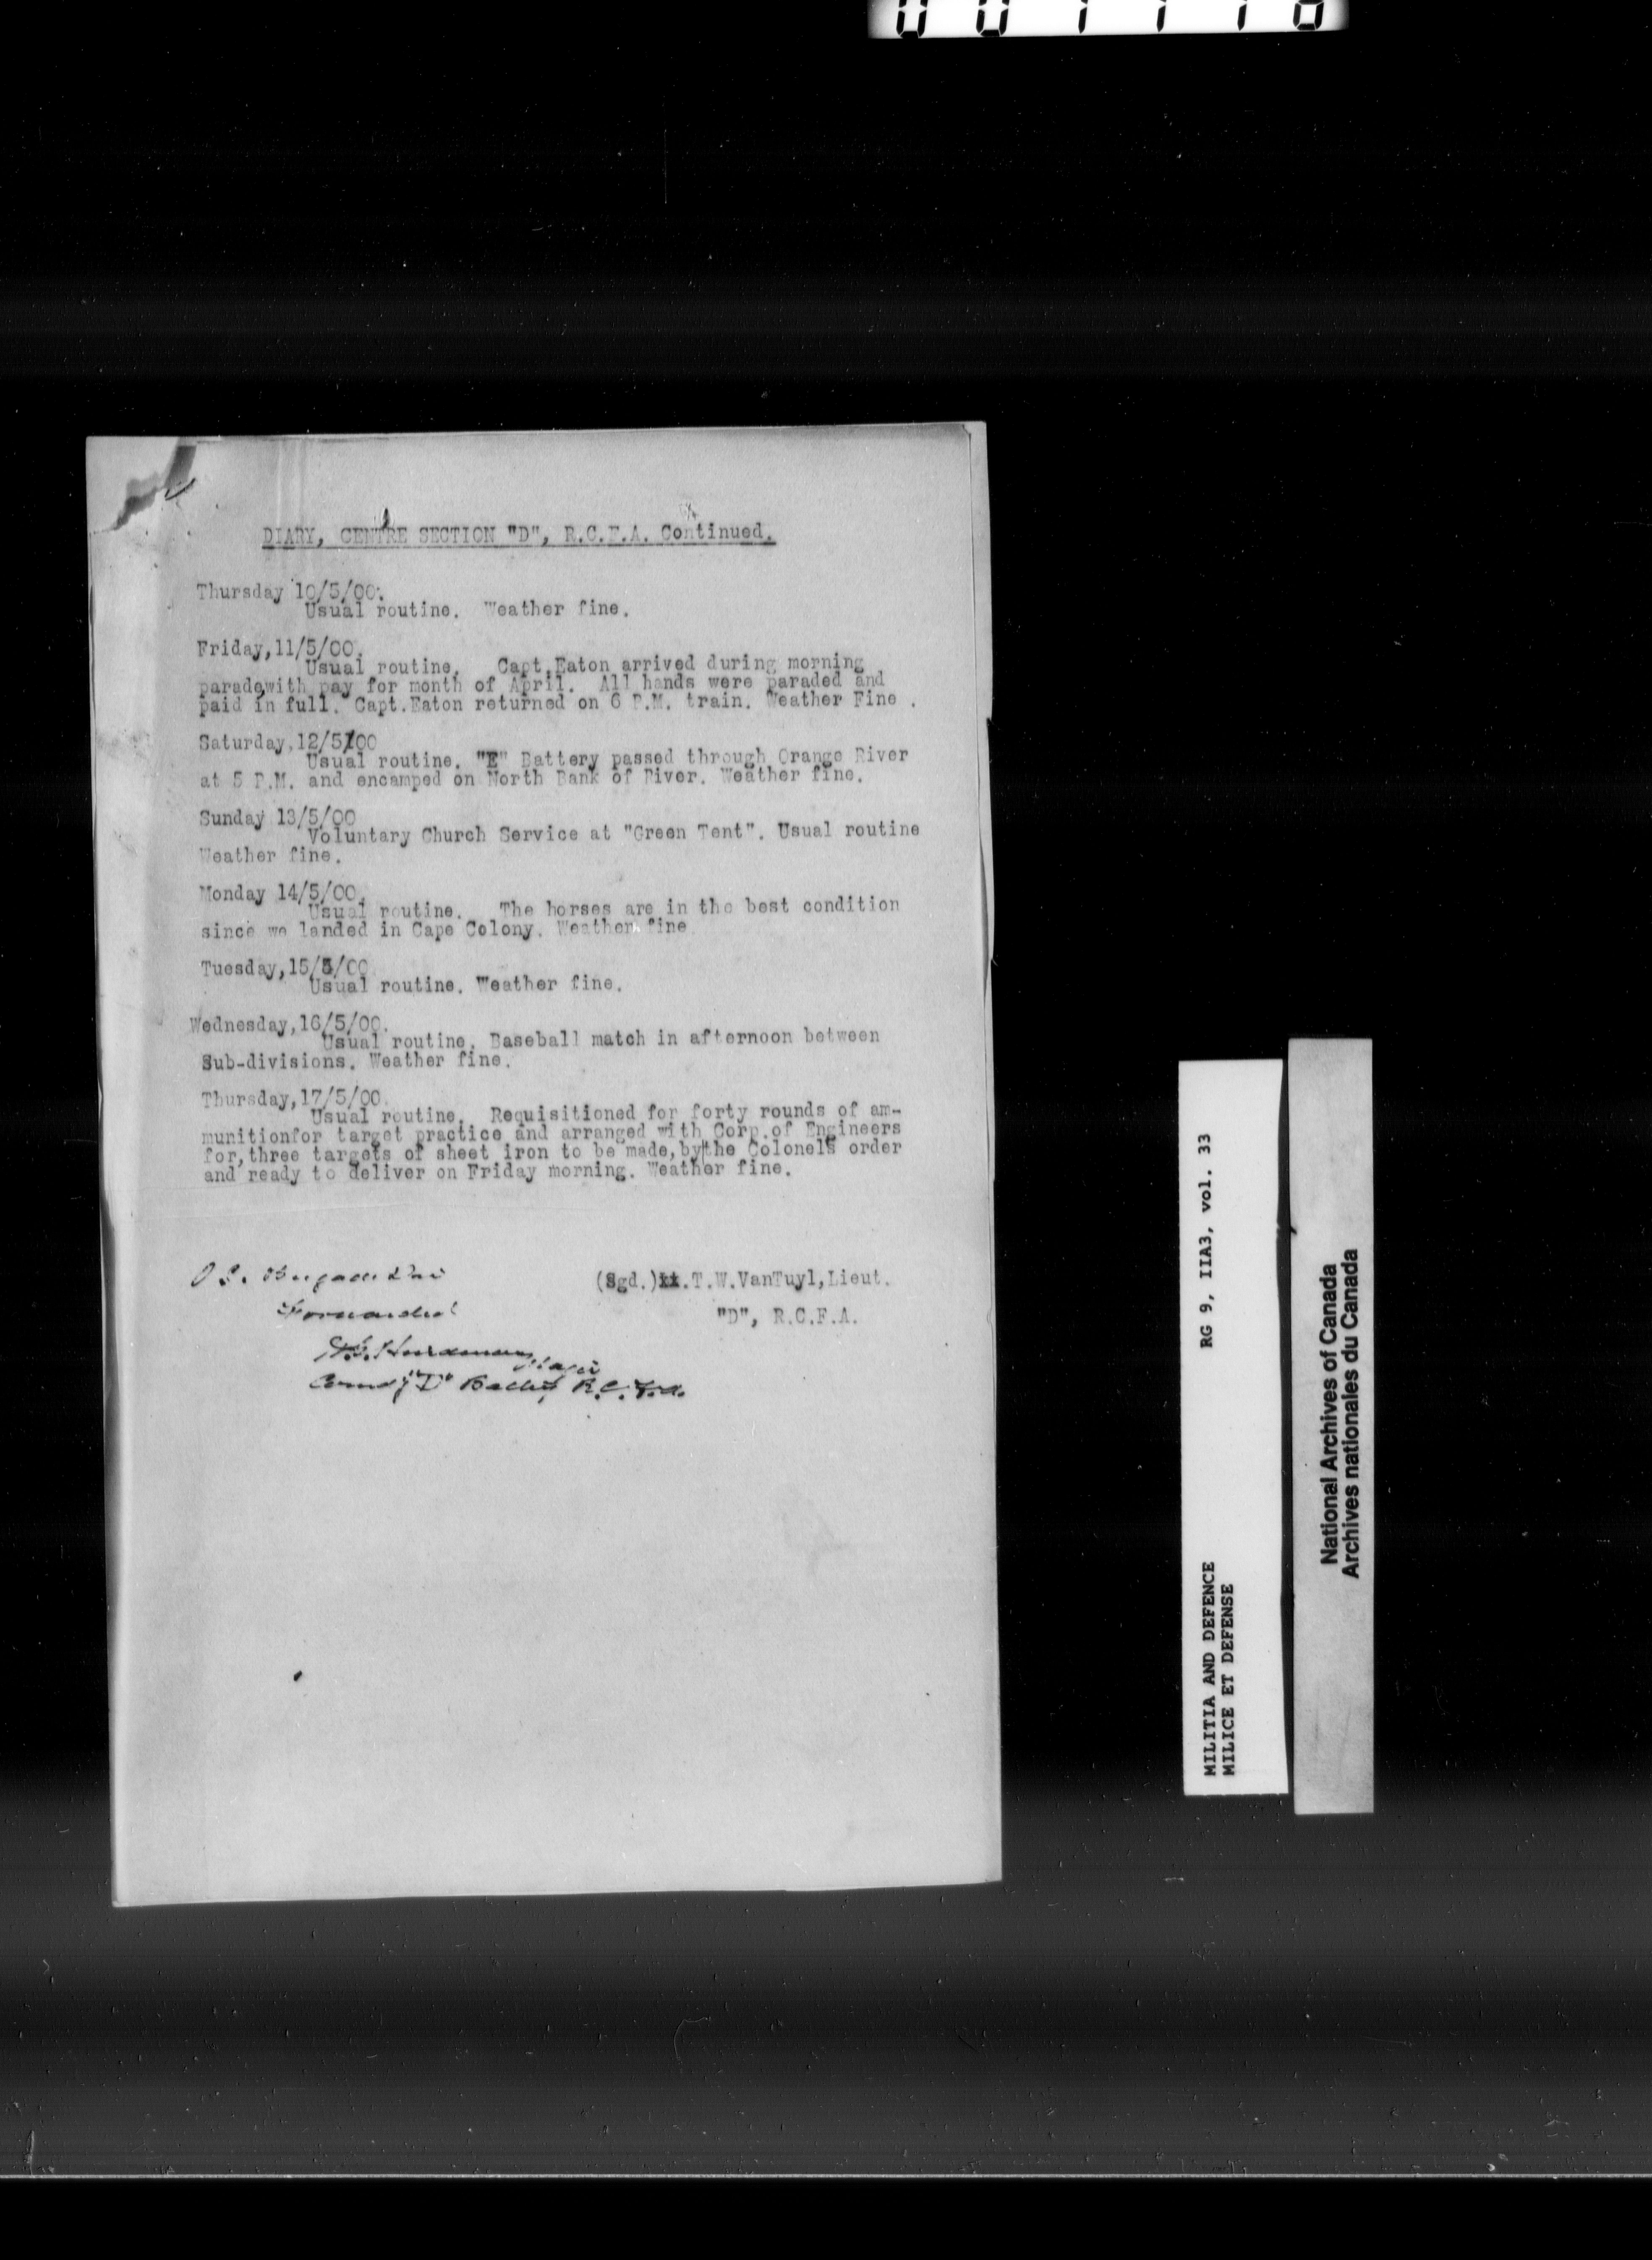 DIARY, CENTRE SECTION "D", R.C.F.A. Continued.
Thursday 10/5/00.
Usual routine. Weather fine.
Friday, 11/5/00.
Usual routine. Capt. Eaton arrived during morning
parade, with pay for month of April. All hands were paraded and
paid in full. Capt. Eaton returned on 6 P.M. train. Weather Fine .
Saturday, 12/5/00
Usual routine. "E" Battery passed through Orange River
at 5 P.M. and encamped on North Bank of River. Weather fine.
Sunday 13/5/00
Voluntary Church Service at "Green Tent". Usual routine
Weather fine.
Monday 14/5/00.
Usual routine. The horses are in the best condition
since we landed in Cape Colony. Weather fine
Tuesday, 15/5/00
Usual routine. Weather fine.
Wednesday, 16/5/00.
Usual routine. Baseball match in afternoon between
Sub-divisions. Weather fine.
Thursday, 17/5/00.
Usual routine. Requisitioned for forty rounds of am-
munitionfor target practice and arranged with Corp. of Engineers
for, three targets of sheet iron to be made, by the Colonels order
and ready to deliver on Friday morning. Weather fine.
(Sgd.) xx. T.W. VanTuyl, Lieut.
"D", R.C.F.A.
Forwarded
Major
Comdg "D" Batty R.C.F.A.
MILITIA AND DEFENCE RG 9, IIA3, vol. 33
MILICE ET DEFENSE
National Archives of Canada
Archives nationales du Canada